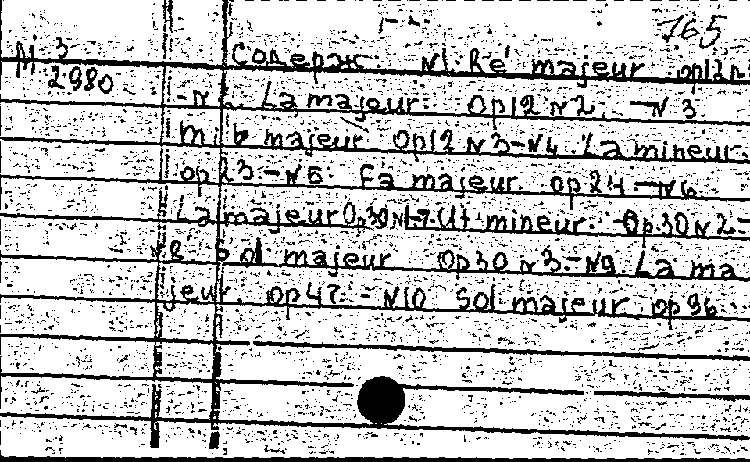 765
М 3 Содерж: N1. Ré majeur. op12 n
2980 - N2. La majeur. Op12 N2. - N3
Mi b majeur Op12 N3 - N4. La mineur.
op23 - N5. Fa majeur. op24 - N6.
La majeur Op30 N1 - 7. Ut mineur. Op.30 N2 -
N8. Sol majeur Op30 N3. - N9 La ma
jeur. op47. - N10 Sol majeur. op96.